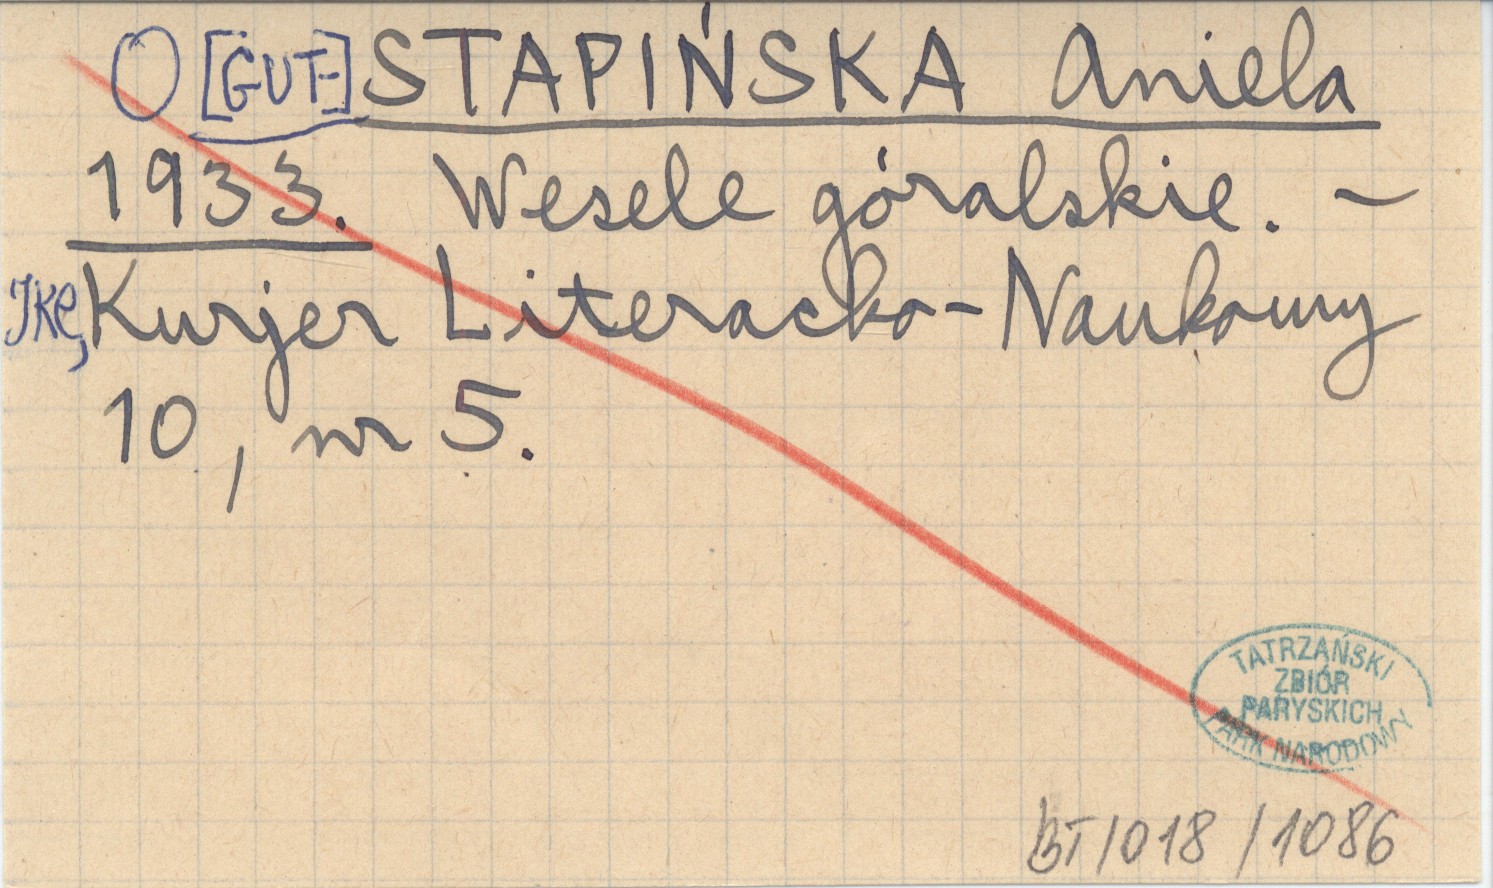 O [GUT-] STAPIŃSKA Aniela
1933. Wesele góralskie. –
IKC, Kurjer Literacko-Naukowy
10, nr 5.
TATRZAŃSKI
ZBIÓR
PARYSKICH
PARK NARODOWY
BT/018/1086